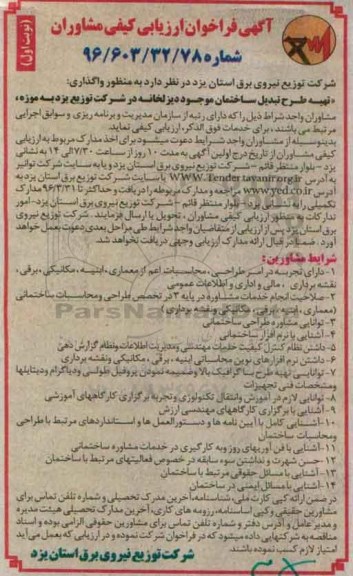 آگهی فراخوان ارزیابی کیفی مشاوران
(نوبت اول)
شماره ۹۶/۶۰۳/۳۲/۷۸
شرکت توزیع نیروی برق استان یزد در نظر دارد به منظور واگذاری:
«تهیه طرح تبدیل ساختمان موجود دیزلخانه در شرکت توزیع یزد به موزه»
مشاوران واجد شراط ذیل را که دارای رتبه از سازمان مدیریت و برنامه ریزی و سوابق اجرایی
مرتبط می باشند، برای خدمات فوق الذکر، ارزیابی کیفی نماید.
بدینوسیله از مشاوران واجد شرایط دعوت میشود برای اخذ مدارک مربوط به ارزیابی
کیفی مشاوران از تاریخ درج اولین آگهی به مدت ۱۰ روز از ساعت ۷/۳۰ الی ۱۴ به نشانی
یزد - بلوار منتظر قائم - شرکت توزیع نیروی برق استان یزد و یا به سایت شرکت توانیر
به آدرس WWW.Tender.tavanir.org.ir یا سایت شرکت توزیع برق استان یزد به
آدرس www.yed.co.ir مراجعه و مدارک مربوطه را دریافت و حداکثر تا ۹۶/۳/۳۱ مدارک
تکمیلی را به نشانی یزد- بلوار منتظر قائم - شرکت توزیع نیروی برق استان یزد- امور
تدارکات به منظور ارزیابی کیفی مشاوران، تحویل یا ارسال فرمایند. شرکت توزیع نیروی
برق استان یزد پس از ارزیابی از متقاضیان واجد شرایط طی مراحل بعدی دعوت بعمل خواهد
آورد. ضمنا در قبال ارائه مدارک ارزیابی وجهی دریافت نخواهد شد.
شرایط مشاورین:
۱- دارای تجربه در امر طراحی، محاسبات اعم از معماری، ابنیه، مکانیکی، برقی،
نقشه برداری، مالی و اداری و اطلاعات عمومی
۲- صلاحیت انجام خدمات مشاوره در پایه ۳ در تخصص طراحی و محاسبات ساختمانی
(معماری، ابنیه، برقی، مکانیکی و نقشه برداری)
۳- توانایی مشاوره طراحی ساختمانی
۴- آشنایی با نرم افزار ساختمانی
۵- داشتن نظام کنترل کیفیت خدمات مهندسی و مدیریت اطلاعات و نظام گزارش دهی
۶- داشتن نرم افزارهای نوین محاسباتی ابنیه، برقی، مکانیکی و نقشه برداری
۷- توانایی تهیه طرح با گرافیک بالا و ضمیمه نمودن پروفیل طولی و دیاگرام و دیتایلها
ومشخصات فنی تجهیزات
۸- توانایی لازم در آموزش و انتقال تکنولوژی و تجربه برگزاری کارگاههای آموزشی
۹- آشنایی با برگزاری کارگاههای مهندسی ارزش
۱۰- آشنایی کامل با آیین نامه ها و دستورالعمل ها و استانداردهای مرتبط با طراحی
ومحاسبات ساختمان
۱۱- آشنایی با فن آوریهای روز و به کارگیری در خدمات مشاوره ساختمانی
۱۲- حسن شهرت و نداشتن سوء سابقه در خصوص فعالیتهای مرتبط با ساختمان
۱۳- آشنایی با مسائل حقوقی مرتبط با ساختمان
۱۴- آشنایی با مسائل ایمنی در ساختمان
در ضمن ارائه کپی کارت ملی، شناسنامه، آخرین مدرک تحصیلی و شماره تلفن تماس برای
مشاورین حقیقی و کپی اساسنامه، رزومه های کاری، آخرین مدارک تحصیلی هیئت مدیره
و مدیر عامل و آدرس دفتر و شماره تلفن تماس برای مشاورین حقوقی الزامی بوده و اسناد
مناقصه به شرکتهایی داده میشود که در فراخوان شرکت نموده و در ارزیابی که بعمل می آید
امتیاز لازم کسب نموده باشند.
شرکت توزیع نیروی برق استان یزد